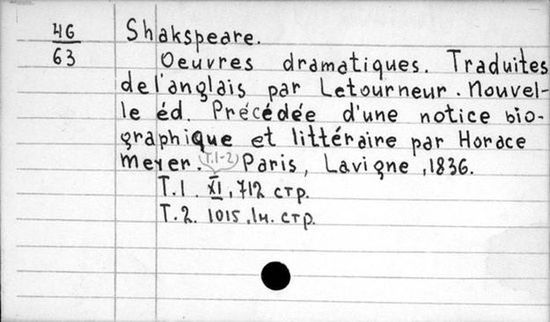 46
63
Shakspeare.
Oeuvres dramatiques. Traduites
de l'anglais par Letourneur. Nouvel-
le éd. Précédée d'une notice bio-
graphique et littéraire par Horace
Meyer. (T.1-2) Paris, Lavigne, 1836.
T.1. XI, 712 стр.
T.2. 1015, 1н. стр.